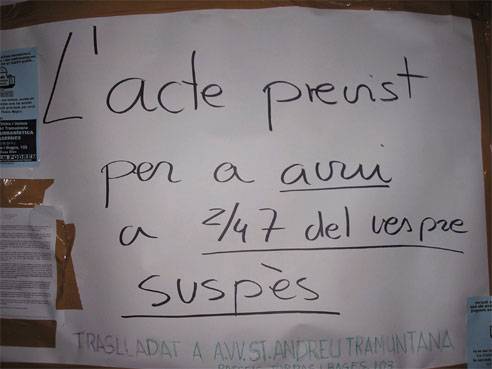 L'acte previst
per a avui
a 2/4 7 del vespre
suspès
TRASLLADAT A AVV. ST. ANDREU TRAMUNTANA
PASSEIG TORRAS I BAGES, 103